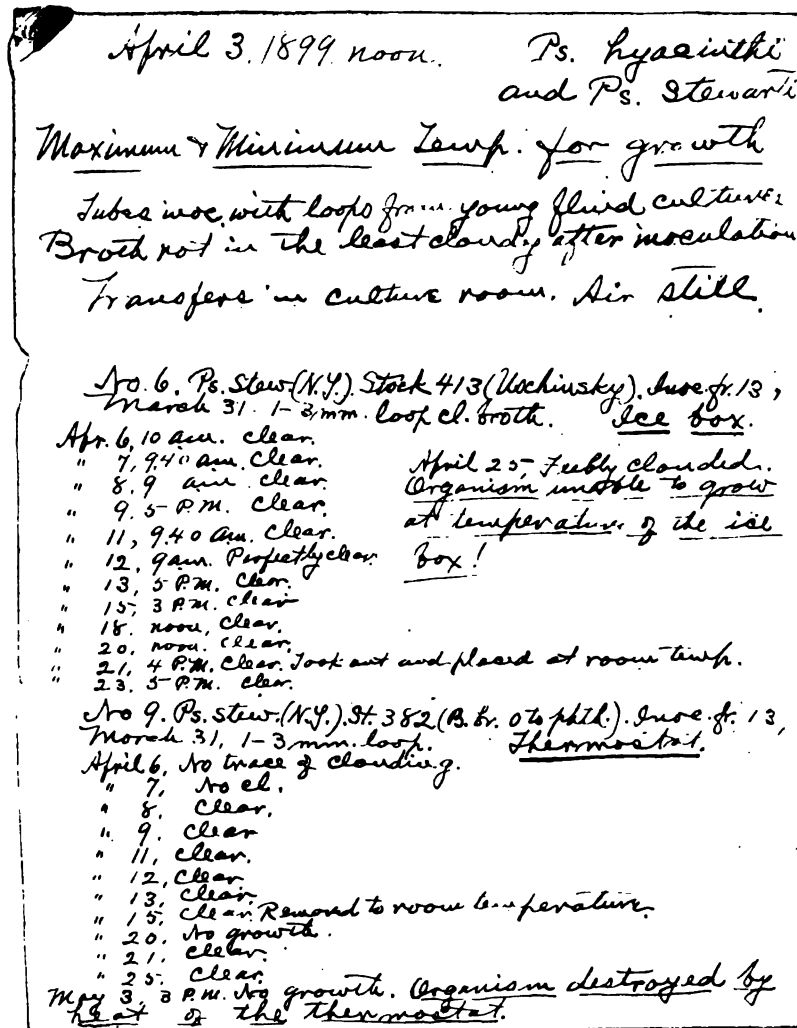 April 3. 1899 noon. Ps. hyacinthi
and Ps. Stewarti
Maximum & Minimum Temp. for growth
Tubes inoc. with loops from young fluid cultures
Broth not in the least cloudy after inoculation
Transfers in culture room. Air still.
No. 6. Ps. Stew. (N.Y.). Stock 413 (Uschinsky). Inoc. fr. 13,
March 31. 1-3 mm. loop cl. broth. Ice box.
Apr. 6, 10 am. clear.
" 7, 9.40 am. Clear.
" 8. 9 am. clear.
" 9. 5 P.M. Clear.
" 11, 9.40 am. Clear.
" 12, 9 am. Perfectly clear.
" 13, 5 P.M. Clear.
" 15, 3 P.M. Clear
" 18. noon, Clear.
" 20, noon. Clear.
" 21, 4 P.M. Clear. Took out and placed at room temp.
" 23. 5 P.M. Clear.
April 25, Feebly clouded.
Organism unable to grow
at temperature of the ice
box!
No 9. Ps. Stew. (N.Y.). St. 382 (B. br. 0 to phth.). Inoc. fr. 13,
March 31, 1-3 mm. loop. Thermostat.
April 6, No trace of clouding.
" 7, No cl.
" 8, Clear.
" 9. Clear
" 11, Clear.
" 12, Clear
" 13, Clear.
" 15, Clear. Removed to room temperature.
" 20. No growth.
" 21. Clear.
" 25. Clear.
May 3, 3 P.M. No growth. Organism destroyed by
heat of the thermostat.